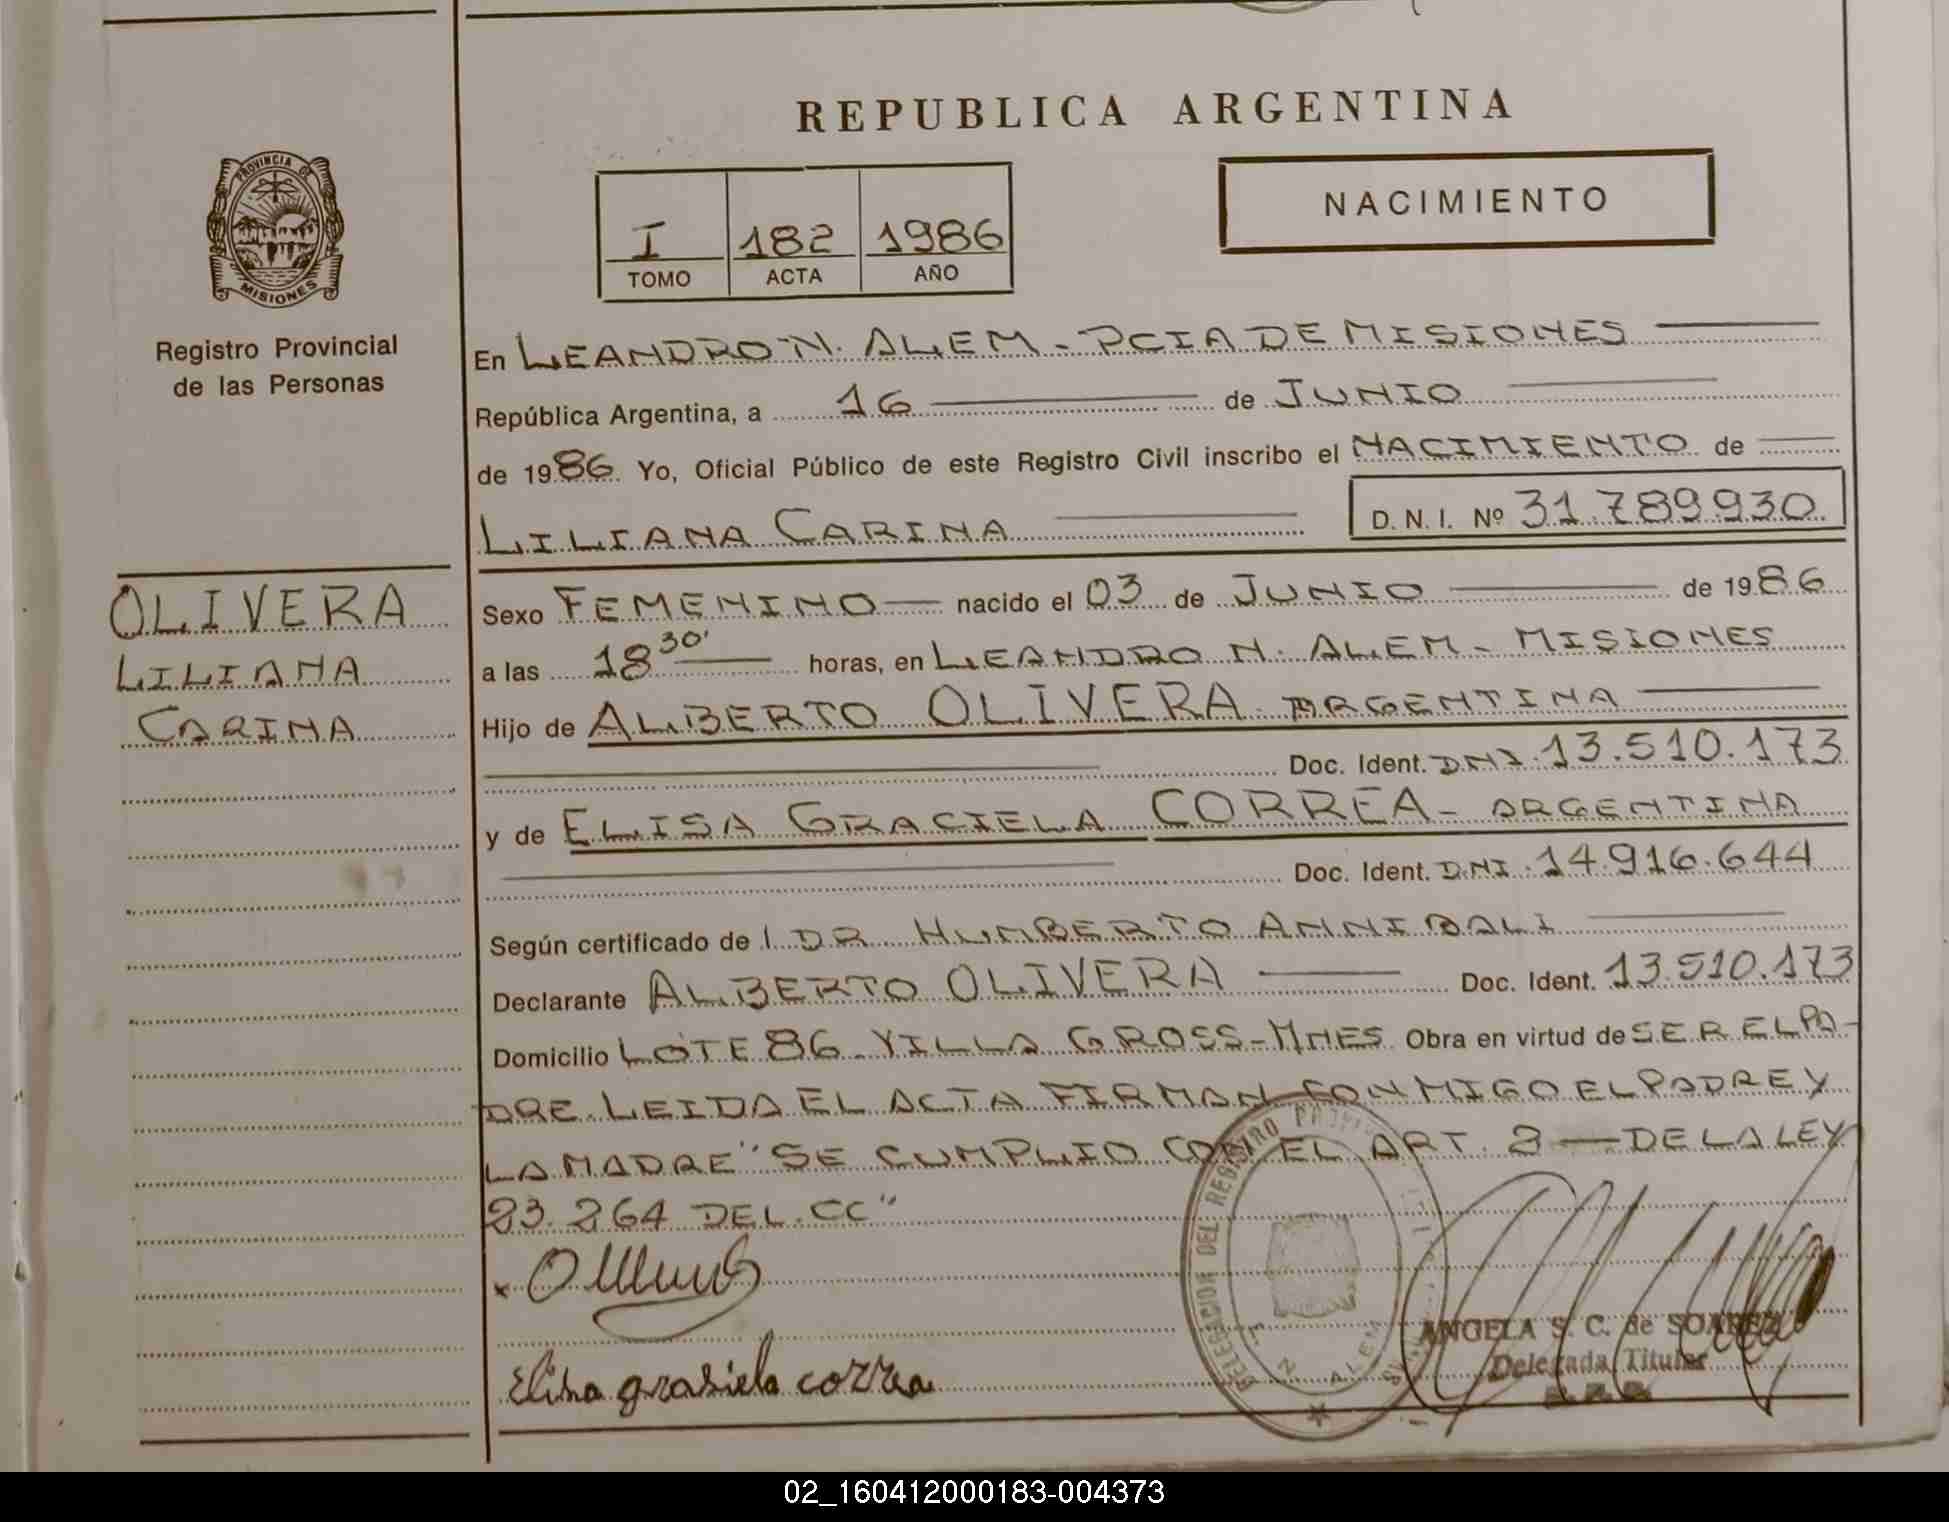 REPUBLICA ARGENTINA
PROVINCIA DE
MISIONES
Registro Provincial
de las Personas
I 182 1986
TOMO ACTA AÑO
NACIMIENTO
En LEANDRO N. ALEM - PCIA DE MISIONES
República Argentina, a 16 de JUNIO
de 1986 Yo, Oficial Público de este Registro Civil inscribo el NACIMIENTO de
LILIANA CARINA D. N. I. Nº 31.789.930.
OLIVERA
LILIANA
CARINA
Sexo FEMENINO nacido el 03 de JUNIO de 1986
a las 18 30' horas, en LEANDRO N. ALEM - MISIONES
Hijo de ALBERTO OLIVERA - ARGENTINA
Doc. Ident. DNI. 13.510.173
y de ELISA GRACIELA CORREA - ARGENTINA
Doc. Ident. DNI. 14.916.644
Según certificado de l DR HUMBERTO ANNIBALI
Declarante ALBERTO OLIVERA Doc. Ident. 13.510.173
Domicilio LOTE 86 - VILLA GROSS - MNES Obra en virtud de SER EL PA-
DRE. LEIDA EL ACTA FIRMAN CONMIGO EL PADRE Y
LA MADRE "SE CUMPLIO CON EL ART. 2 — DE LA LEY
23.264 DEL CC"
Elisa grasiela correa
DELEGACION DEL REGISTRO
L. N. ALEM
ANGELA S. C. de SOAREZ
Delegada Titular
02_160412000183-004373